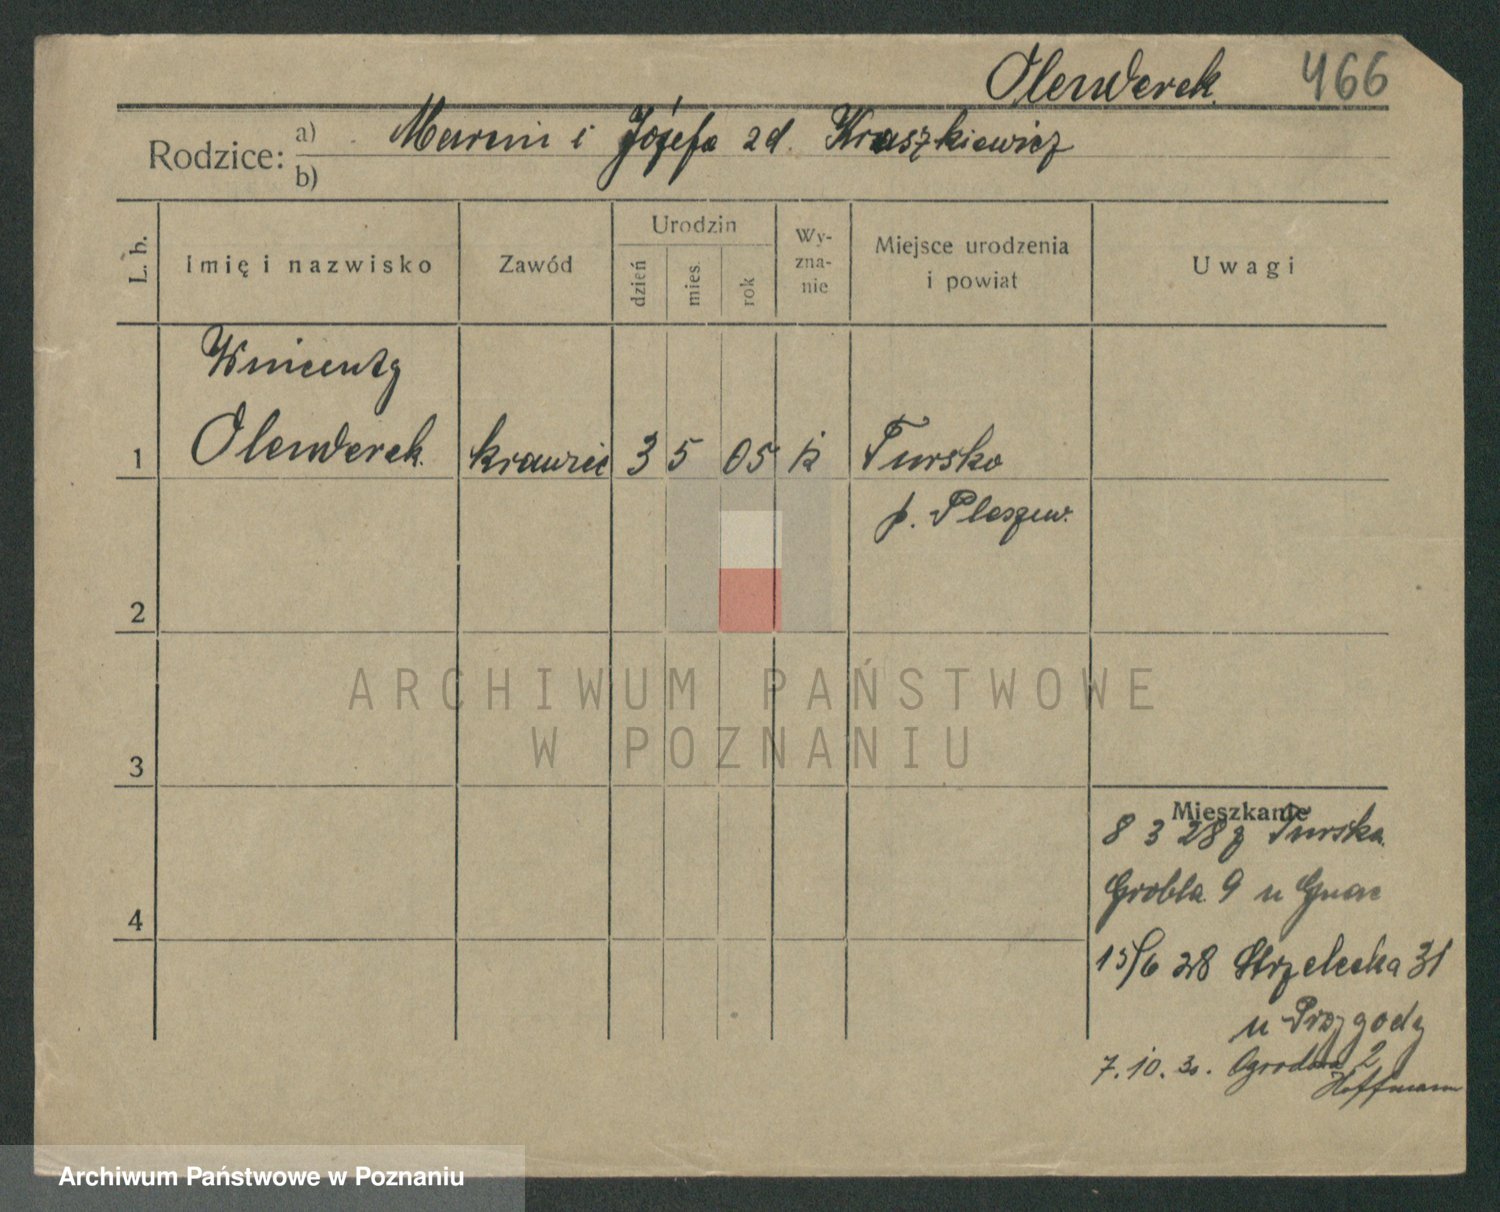 Olenderek 466
Rodzice: a) Marcin i Józefa zd. Kraszkiewicz
b)
L. b. Imię i nazwisko Zawód Urodzin dzień mies. rok Wyznanie Miejsce urodzenia i powiat Uwagi
Wincenty
1 Olenderek krawiec 3 5 05 k Tursko
p. Pleszew.
2
ARCHIWUM PAŃSTWOWE
W POZNANIU
3
Mieszkanie
8 3 28 z Turska
Grobla 9 u Gnac
4
15/6 28 Strzelecka 31
u Przygody
7.10.30. Ogrodowa 2
Hoffmann
Archiwum Państwowe w Poznaniu